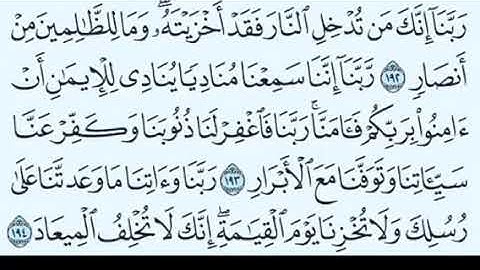 رَبَّنَآ إِنَّكَ مَن تُدْخِلِ ٱلنَّارَ فَقَدْ أَخْزَيْتَهُۥ ۖ وَمَا لِلظَّـٰلِمِينَ مِنْ
أَنصَارٍ ١٩٢ رَّبَّنَآ إِنَّنَا سَمِعْنَا مُنَادِيًا يُنَادِى لِلْإِيمَـٰنِ أَنْ
ءَامِنُوا۟ بِرَبِّكُمْ فَـَٔامَنَّا ۚ رَبَّنَا فَٱغْفِرْ لَنَا ذُنُوبَنَا وَكَفِّرْ عَنَّا
سَيِّـَٔاتِنَا وَتَوَفَّنَا مَعَ ٱلْأَبْرَارِ ١٩٣ رَبَّنَا وَءَاتِنَا مَا وَعَدتَّنَا عَلَىٰ
رُسُلِكَ وَلَا تُخْزِنَا يَوْمَ ٱلْقِيَـٰمَةِ ۗ إِنَّكَ لَا تُخْلِفُ ٱلْمِيعَادَ ١٩٤